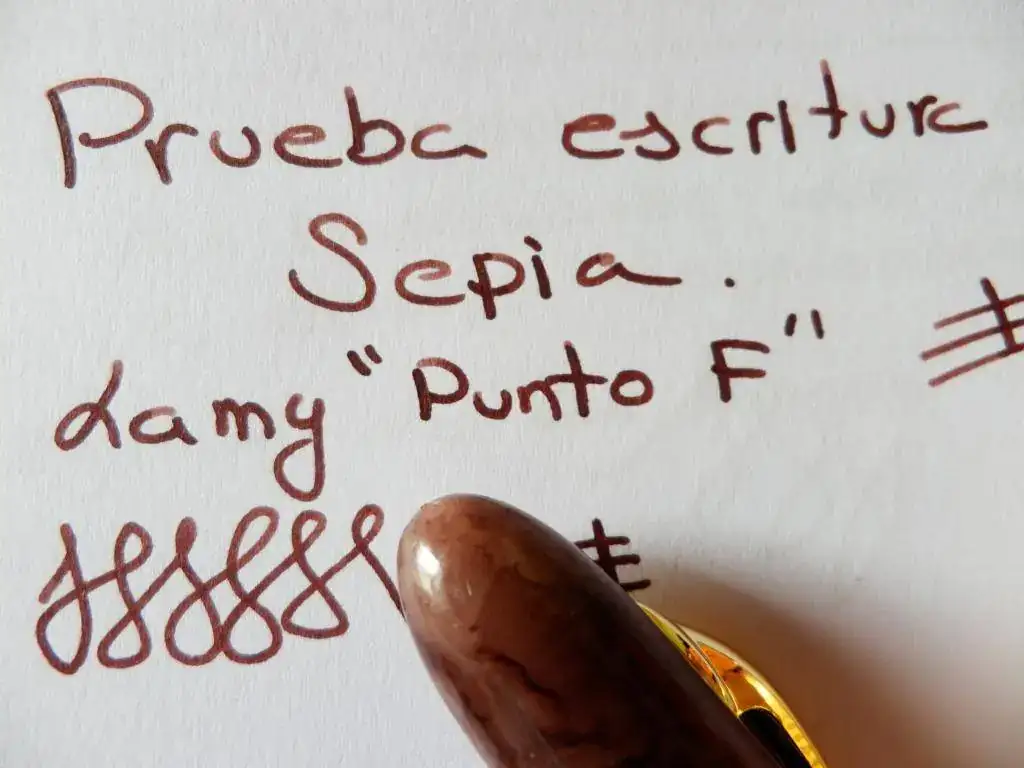 Prueba escritura
Sepia.
Lamy "Punto F"